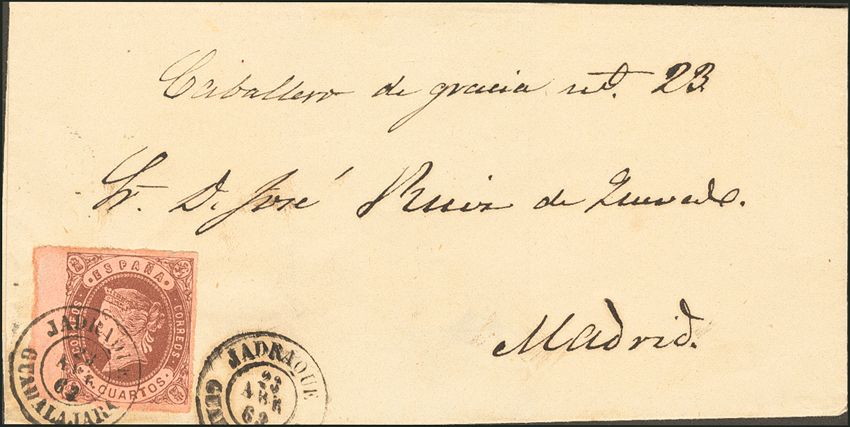 Caballero de gracia nº. 23
Sr. D. José Ruiz de Quevedo.
Madrid.
ESPAÑA
CORREOS
CORREOS
4 CUARTOS
JADRAQUE
23
ABR
62
GUADALAJARA
JADRAQUE
23
ABR
62
GU